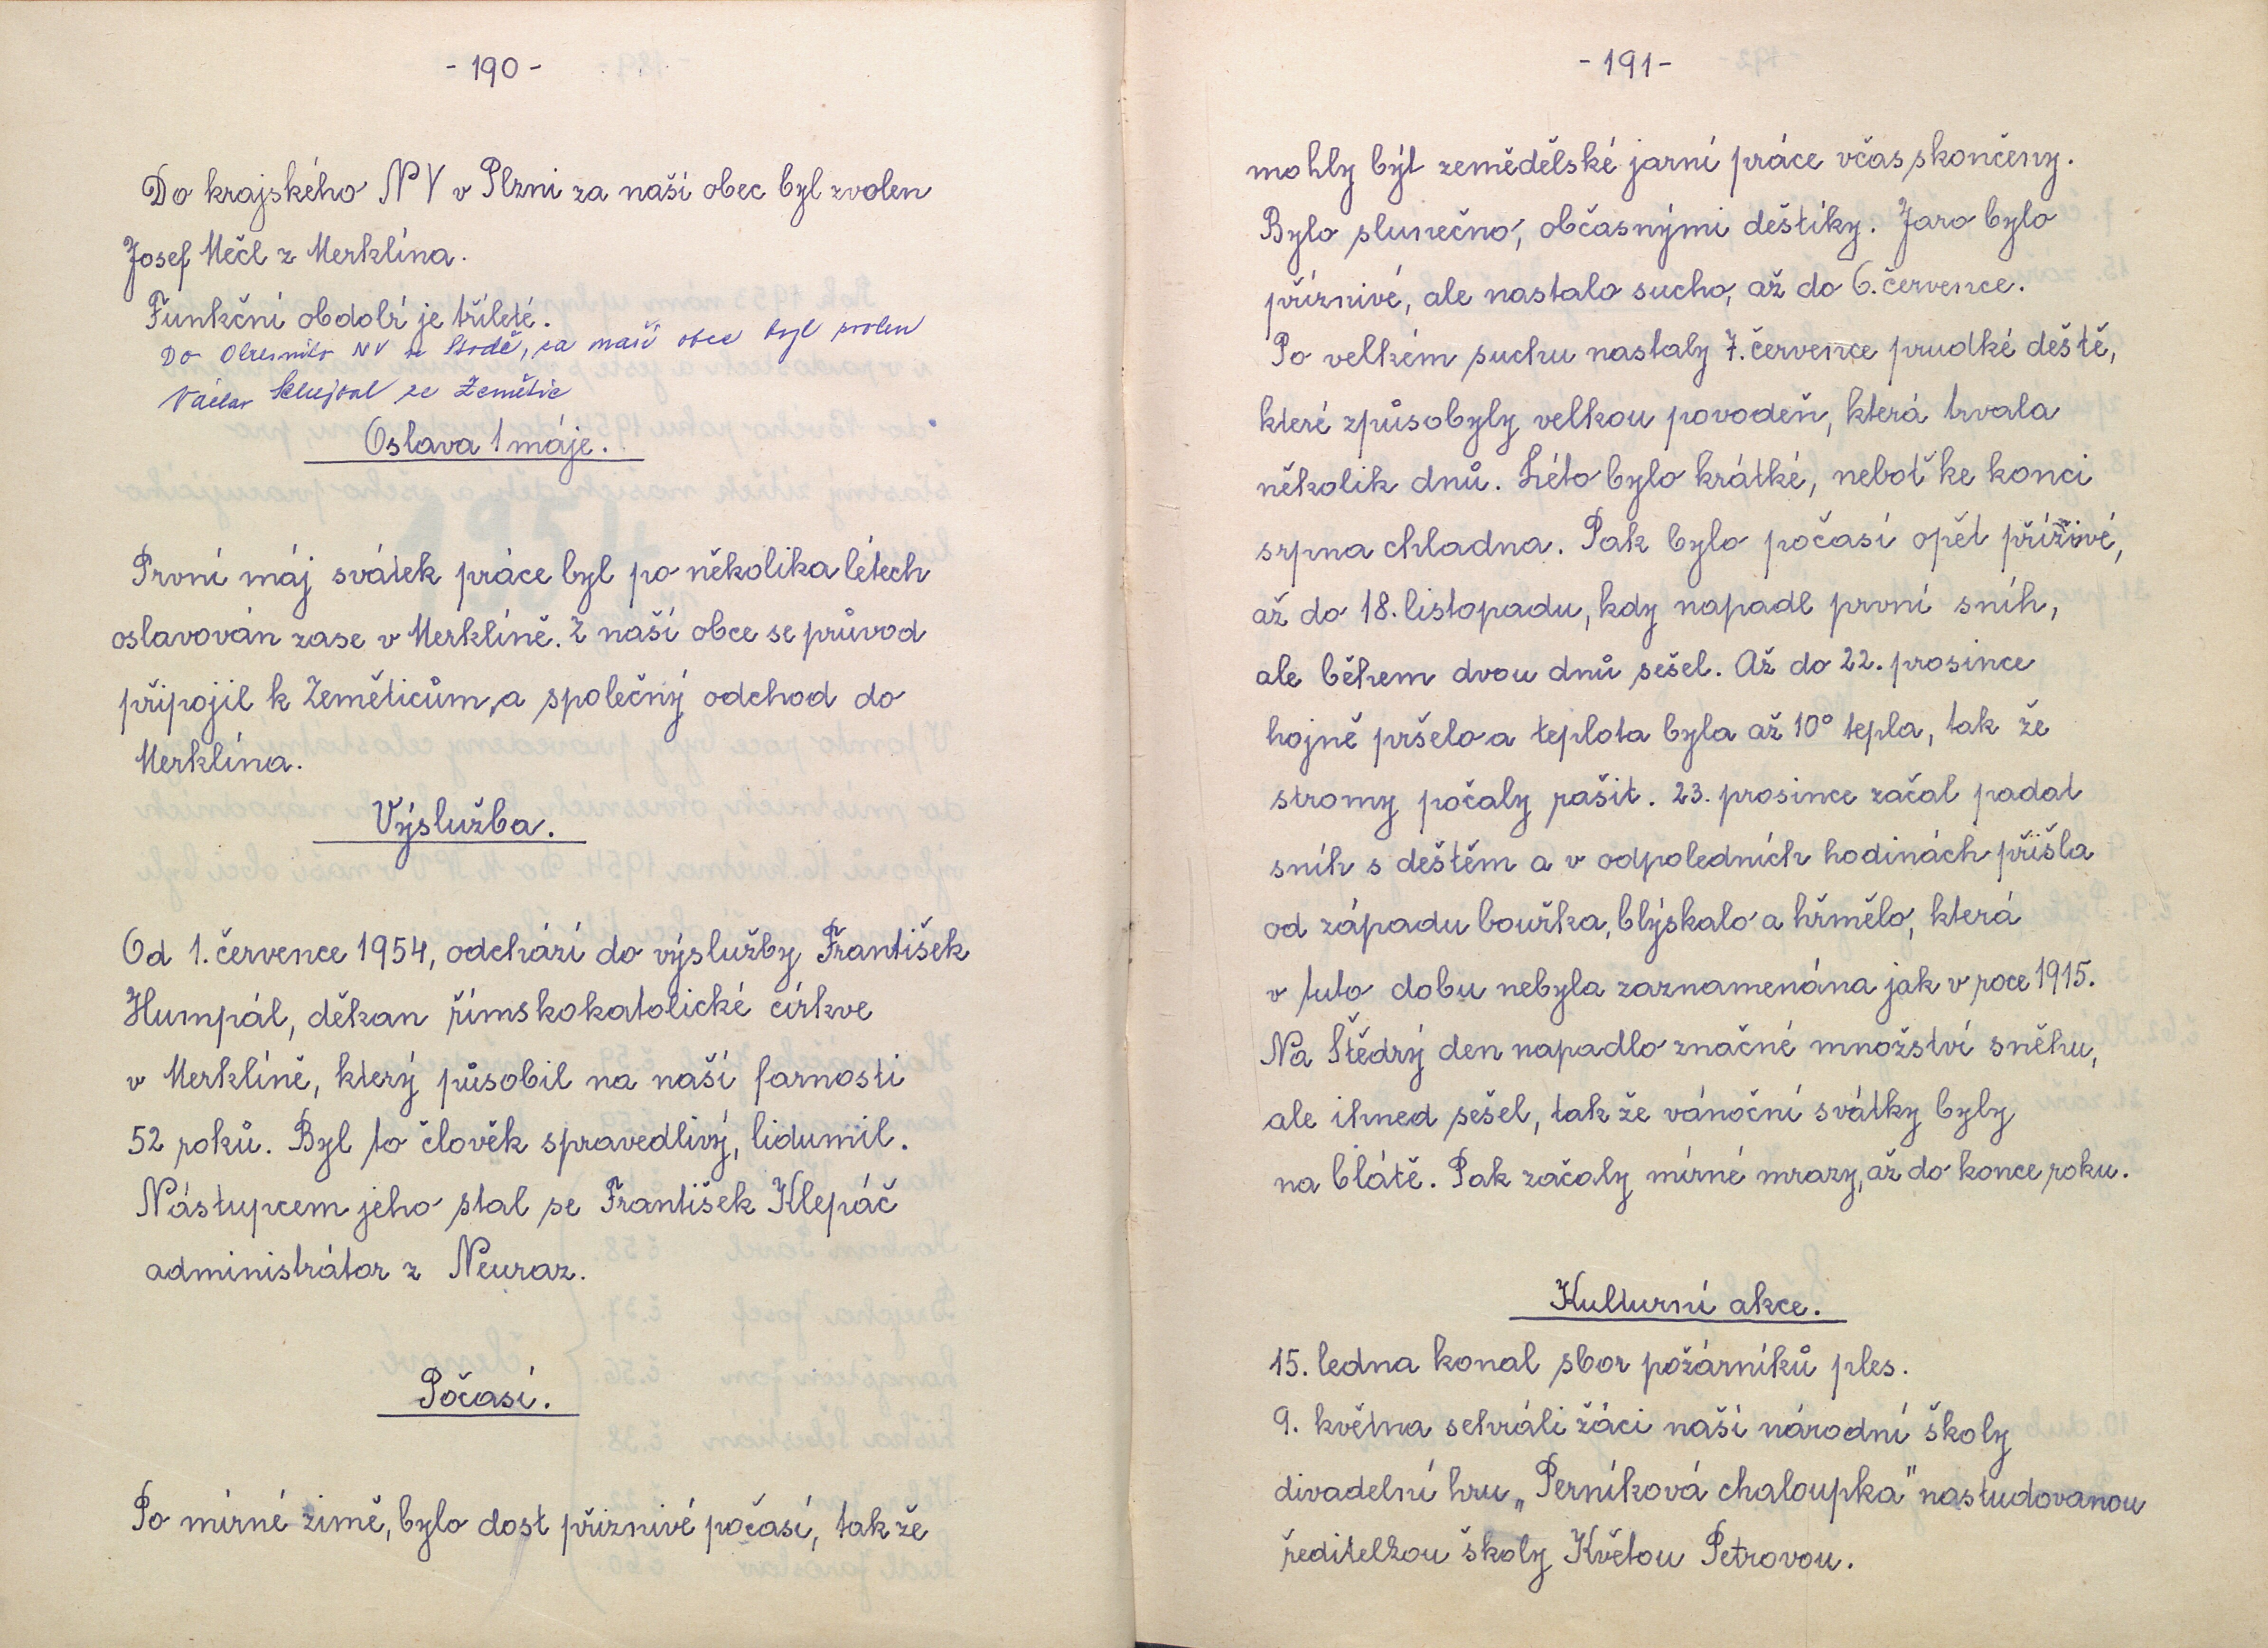 - 190 -
Do krajského NV v Plzni za naší obec byl zvolen
Josef Měčl z Merklína.
Funkční období je tříleté.
Do Okresního NV ve Stodě, za naší obec byl zvolen
Václav ze Zemětic
Oslava 1 máje.
První máj svátek práce byl po několika létech
oslavován zase v Merklíně. Z naší obce se průvod
připojil k Zemětičům, a společný odchod do
Merklína.
Výslužba.
Od 1. července 1954, odchází do výslužby František
Humpál, děkan římskokatolické církve
v Merklíně, který působil na naší farnosti
52 roků. Byl to člověk spravedlivý, lidumil.
Nástupcem jeho stal se František Klepáč
administrátor z Neuraz.
Počasí.
Po mírné zimě, bylo dost příznivé počasí, tak že
- 191 -
mohly být zemědělské jarní práce včas skončeny.
Bylo slunečno, občasnými deštíky. Jaro bylo
příznivé, ale nastalo sucho, až do 6. července.
Po velkém suchu nastaly 7. července prudké deště,
které způsobyly velkou povodeň, která trvala
několik dnů. Léto bylo krátké, neboť ke konci
srpna chladna. Pak bylo počasí opět příznivé,
až do 18. listopadu, kdy napadl první sníh,
ale během dvou dnů sešel. Až do 22. prosince
hojně pršelo a teplota byla až 10° tepla, tak že
stromy počaly rašit. 23. prosince začal padat
sníh s deštěm a v odpoledních hodinách přišla
od západu bouřka, blýskalo a hřmělo, která
v tuto dobu nebyla zaznamenána jak v roce 1915.
Na Štědrý den napadlo značné množství sněhu,
ale ihned sešel, tak že vánoční svátky byly
na blátě. Pak začaly mírné mrazy, až do konce roku.
Kulturní akce.
15. ledna konal sbor požárníků ples.
9. května sehráli žáci naší národní školy
divadelní hru „Perníková chaloupka" nastudovanou
ředitelkou školy Květou Petrovou.